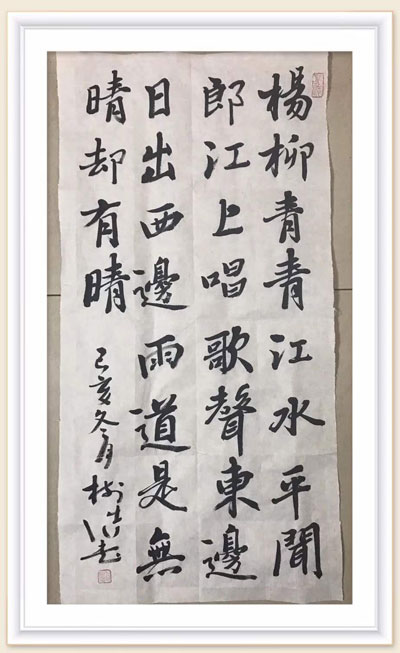 楊柳青青江水平聞
郎江上唱歌聲東邊
日出西邊雨道是無
晴却有晴
己亥冬月樹浩書